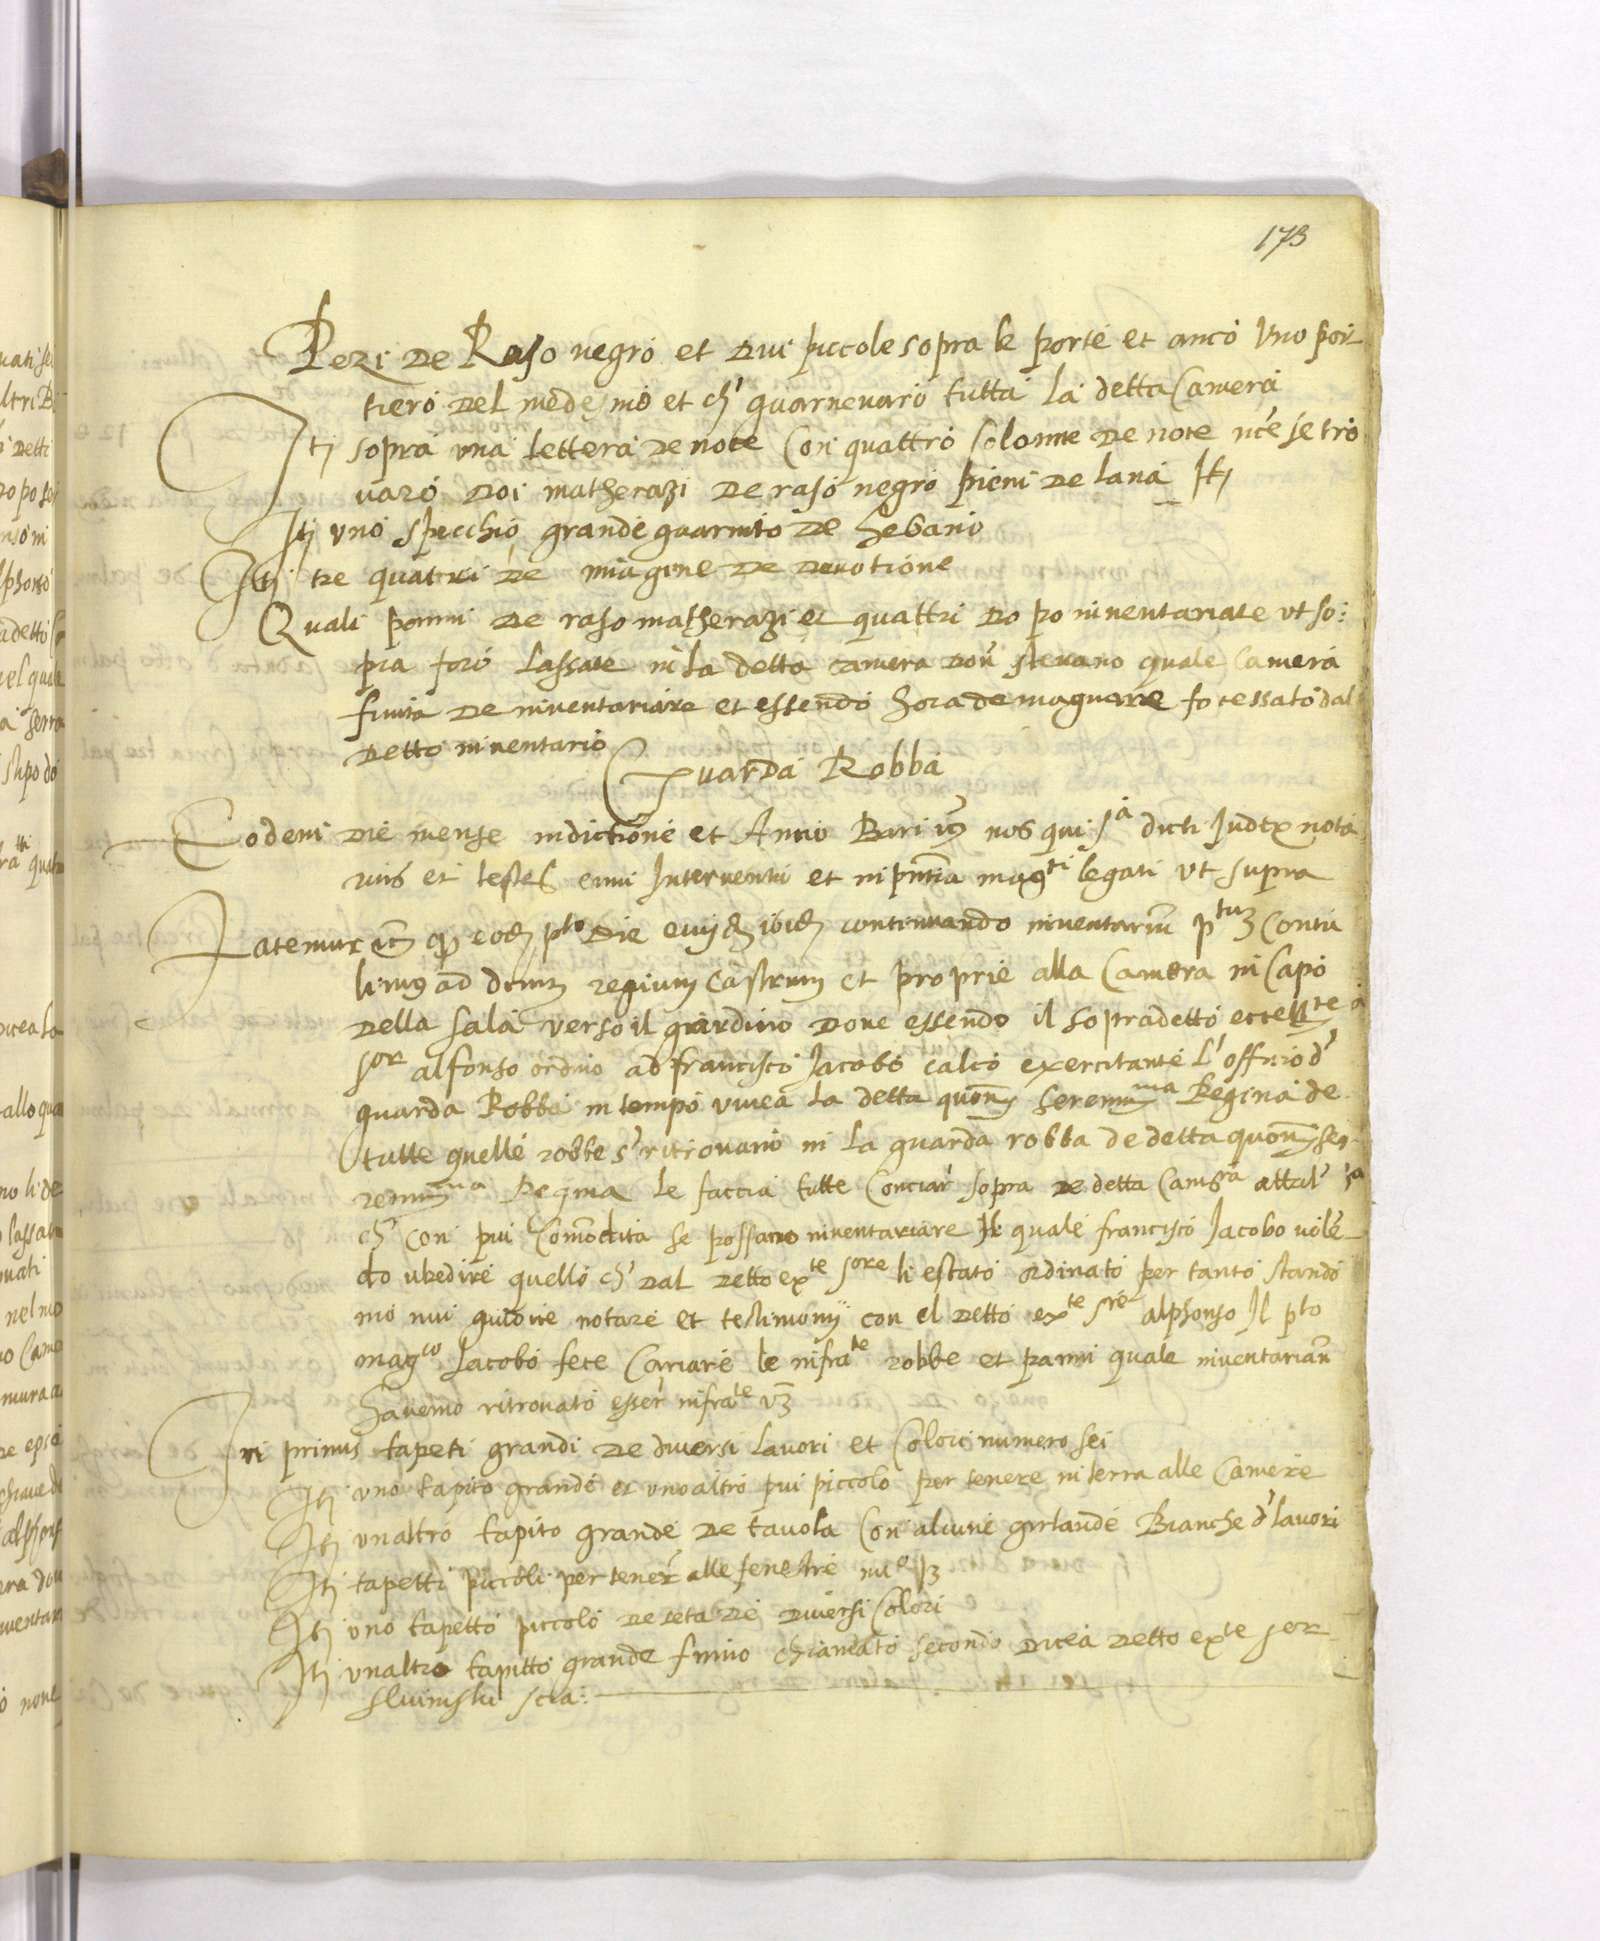 173
Pezi de Raso negro et dui piccole sopra le porte et anco uno por
tiero del medesmo et ch' guarnevaro tutta la detta Camera
Itj sopra una lettera de noce Con quattro colonne de noce nce se tro
varo doi matherazi de raso negro pieni de lana Itj
Itj uno specchio grande guarnito de hebano
Itj tre quatri de imagine de devotione
Quali panni de raso matherazi et quattri dopo inventariate ut so:
pra foro Lassate in la detta camera dov' stevano quale Camera
finita de inventariare et essendo hora de magnare fo cessato dal
detto inventario
Guarda Robba
Eodem die mense indictione et Anno Bari nos qui sa dicti Judex nota
rius et testes cum Interventu et in pntia magti legati ut supra
Fatemur pto Die continuando inventarium Contu
limus ad regium Castrum et proprie alla Camera in Capo
della sala verso il giardino dove essendo il sopradetto eccellte
sor alfonso ordino ad francisco Jacobo calco exercitante L' officio d'
guarda Robba in tempo vivea la detta quonm serenma Regina de
tutte quelle robbe s' ritrovano in la guarda robba de detta quonm se
renma Regina le faccia tutte Conciar' sopra de detta Camera
ch' con piu Commodita se possano inventariare Il quale francisco Jacobo volen
do ubedire quello ch' dal detto exte sore li e stato ordinato per tanto stando
mo nui giudice notare et testimonij con el detto exte sre alphonso Il pto
magco Jacobo fece Cariare le infratte robbe et panni quale inventarian
havemo ritrovato esser' infratte vz
In primis tapeti grandi de diversi Lavori et Colori numero sei
Itj uno tapito grande et uno altro piu piccolo per tenere in terra alle Camere
Itj unaltro tapito grande de tavola Con alcune girlande Bianche d' lavori
Itj tapetti piccoli per tener' alle fenestre
Itj uno tapetto piccolo de seta de diversi Colori
Itj unaltro tapitto grande finno chiamato secondo dicea detto exte sor